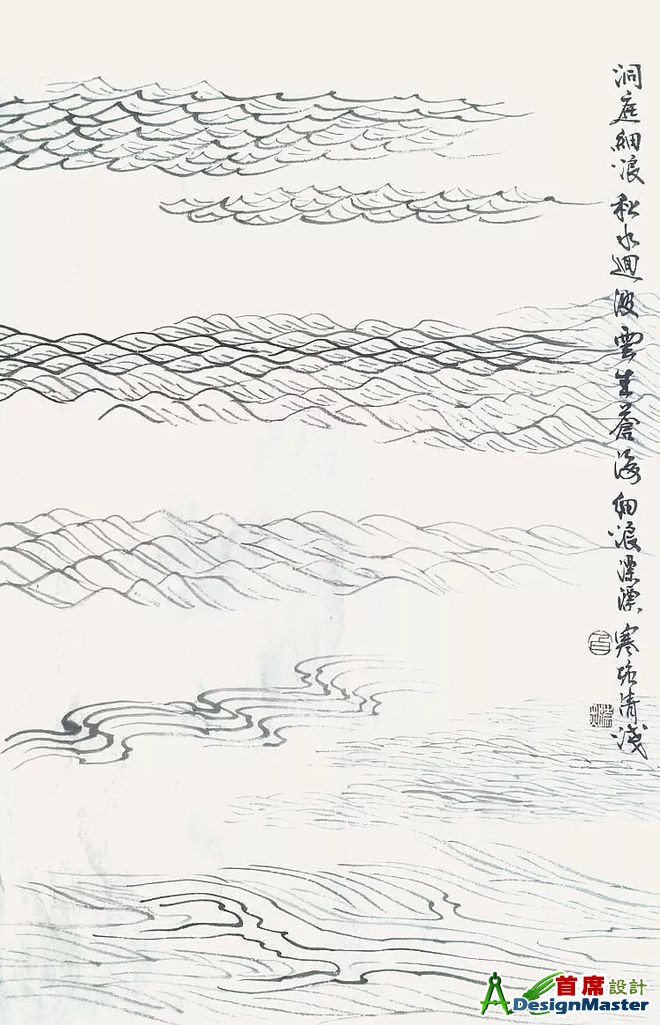 洞庭細浪秋水迴波雲生蒼海細浪漂漂寒塘清淺
首席設計
DesignMaster